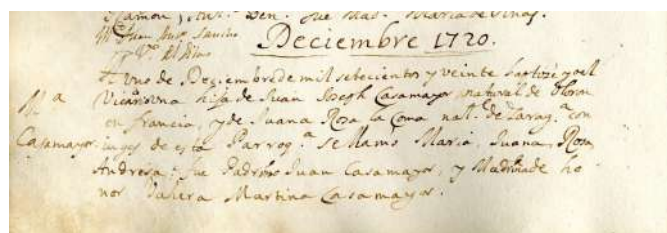 Ramon, Den. fue Mad. Maria de Viñas.
Mº Juan Ant. Sancho
Deciembre 1720.
A Uno de Deziembre de mil setecientos y veinte bautizè yo el
Mª Vicario una hija de Juan Joseph Casamayor natural de Oloron
en francia, y de Juana Rosa la Coma nat.l de Zarag.a con
Casamayor. iuges de esta Parroq.a se llamò Maria, Juana, Rosa,
Andresa; fue Padrino Juan Casamayor, y Madrina de ho
nor Martina Casamayor.